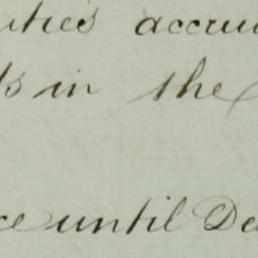 uties accru
ds in the
ce until De